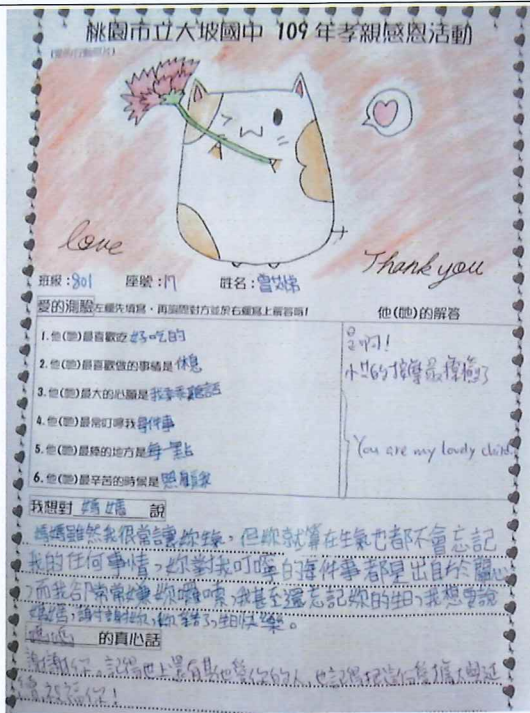 桃園市立大坡國中 109年孝親感恩活動
love
Thank you
班級：801 座號：17 姓名：曾
愛的測驗 左欄先填寫，再詢問對方並於右欄寫上解答唷！ 他(她)的解答
1.他(她)最喜歡吃 好吃的
2.他(她)最喜歡做的事情是 休息
3.他(她)最大的心願是 我乖乖聽話
4.他(她)最常叮嚀我 每件事
5.他(她)最棒的地方是 每一點
6.他(她)最辛苦的時候是 照顧我
是啊！
的按摩最療癒了
You are my lovely child.
我想對 媽媽 說
媽媽雖然我很常讓妳生氣，但妳就算在生氣也都不會忘記
我的任何事情，妳對我叮嚀的每件事都是出自於關心
，而我卻常常嫌妳囉嗦，我甚至還忘記妳的生日，我想要說
媽媽，謝謝妳，妳辛苦了，生日快樂。
媽媽 的真心話
謝謝你，記得世上還有其他愛你的人，也記得把這份愛擴大與延
續，祝福你！